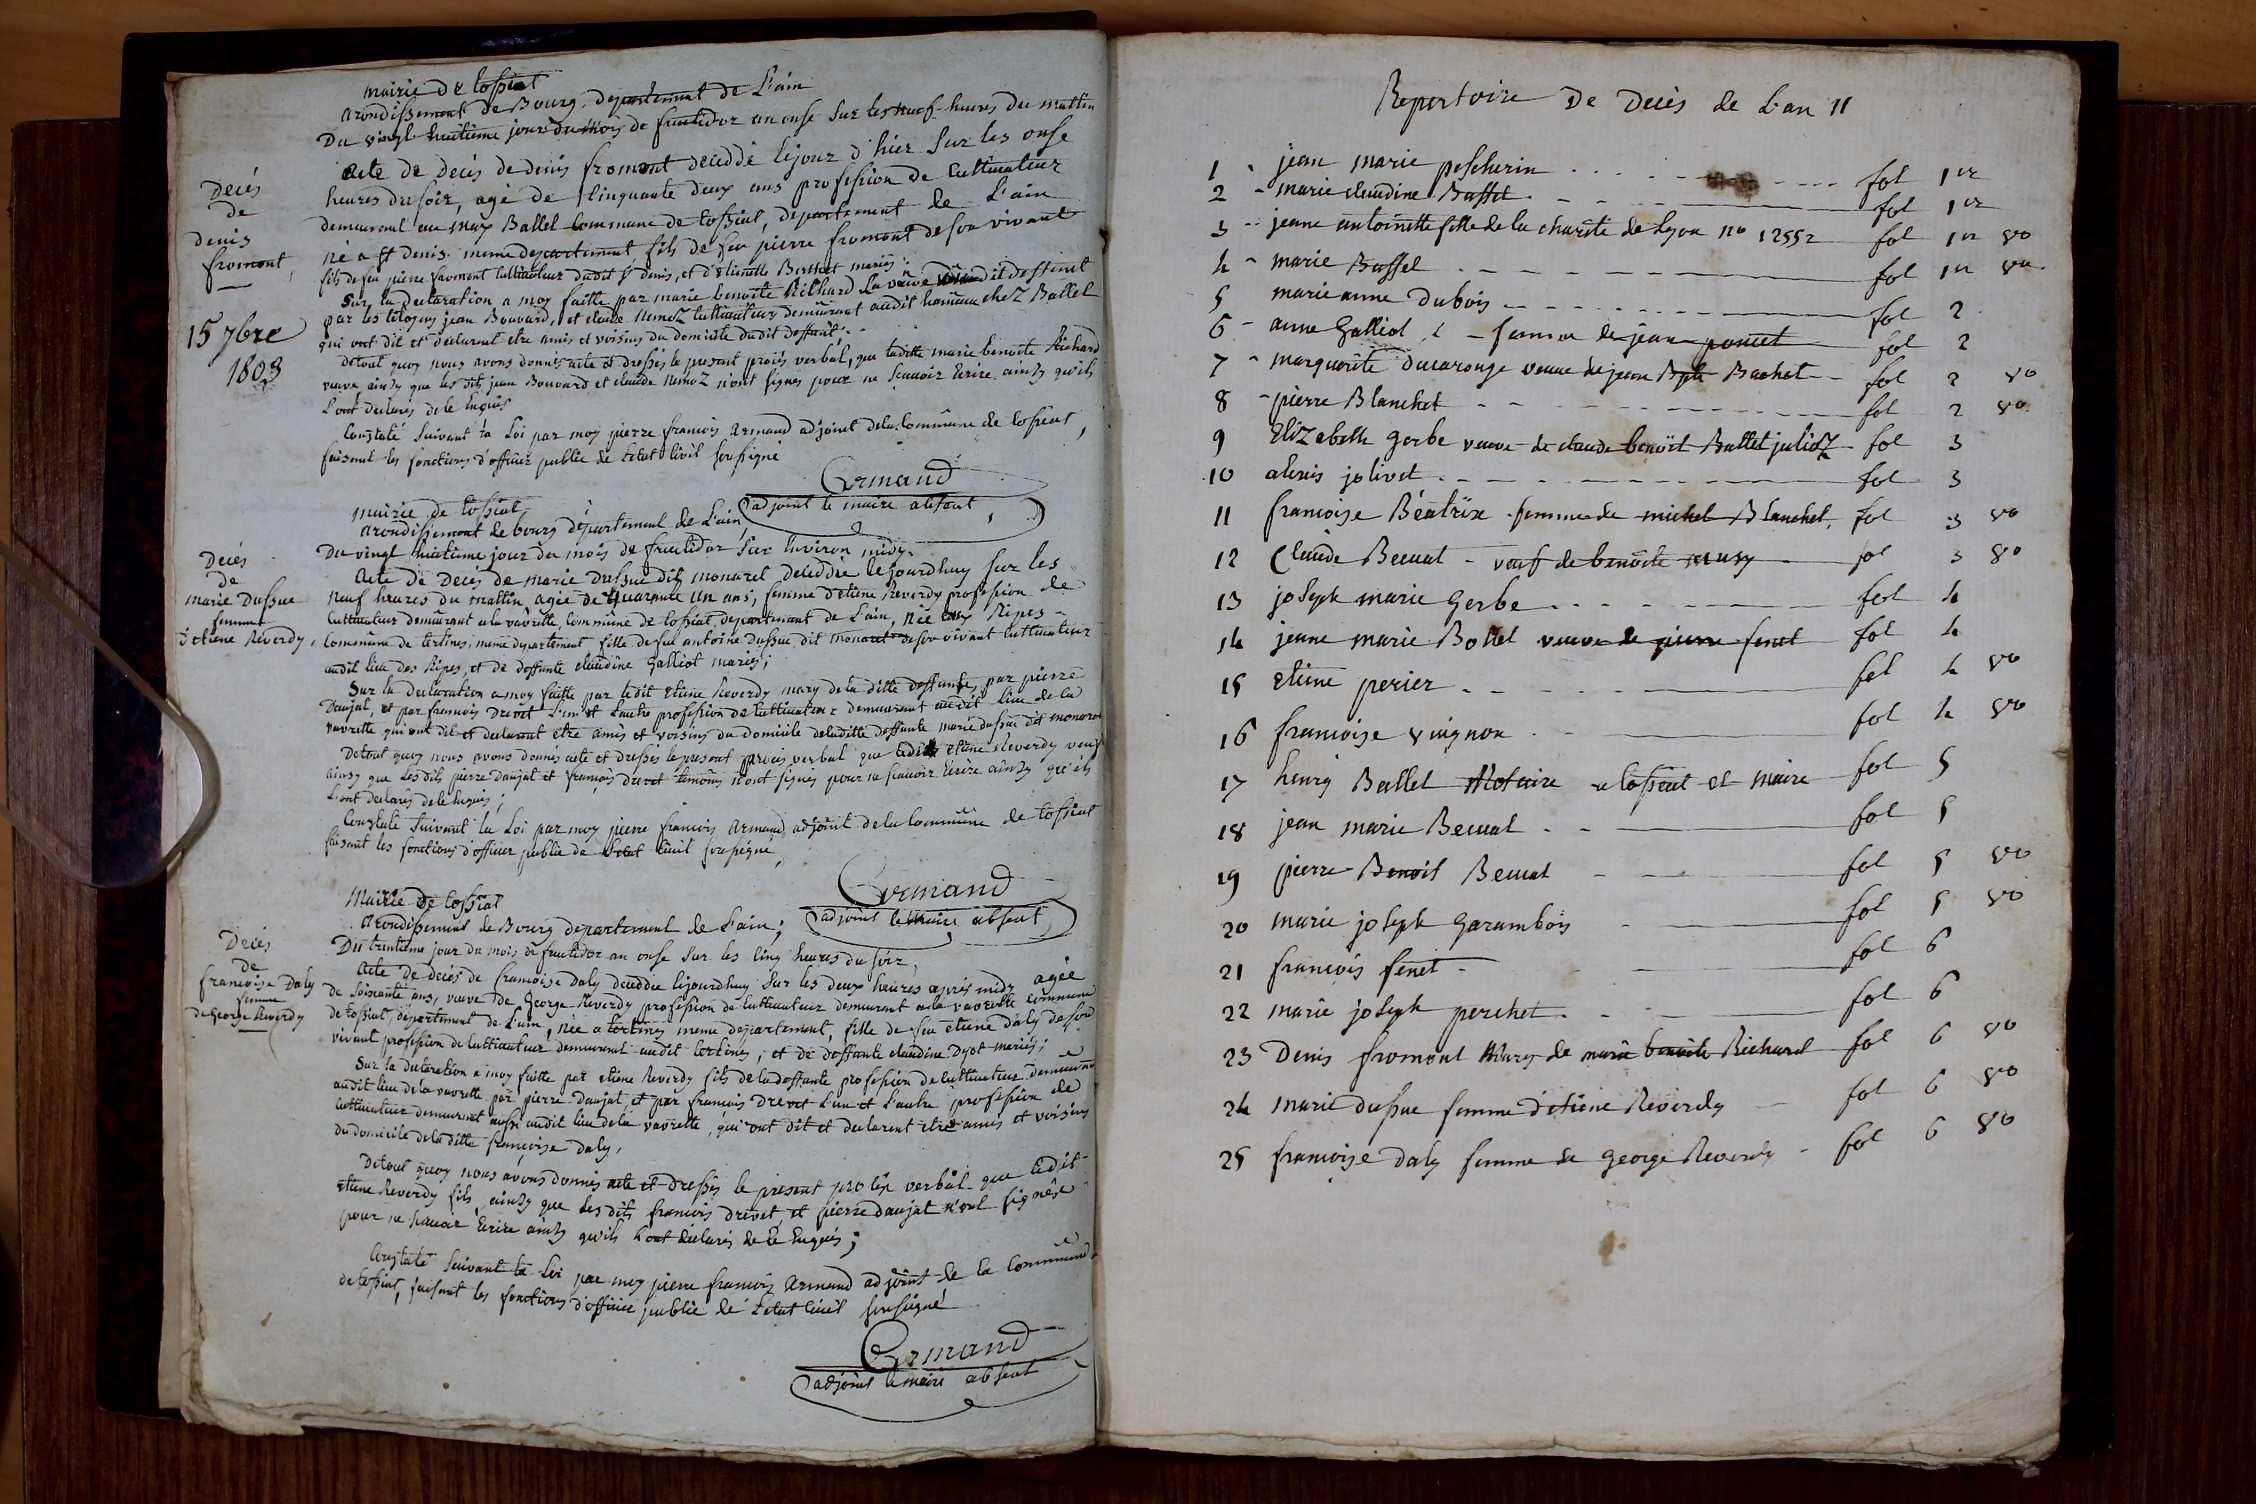 mairie de tossiat
arondissement de Bourg departement de L'ain
Du vingt huitieme jour du mois de fructidor an onse sur les neuf heures du mattin
acte de deces de denis fromont deceddé lejour d'hier sur les onse
heures du soir, agé de cinquante deux ans profession de cultivateur
demeurant au may Ballet commune de tossiat, departement de L'ain
né a st denis meme departement fils de feu pierre fromont de son vivant
fils de feu pierre fromont cultivateur dudit st denis, et d'etienette Berthet mariés
Sur la declaration a moy faitte par marie benoite Richard La veuve dudit deffunt
par les citoyens jean Bouvard, et claude nemoz cultivateurs demeurant audit hameau chez Ballet
qui ont dit et declarant etre amis et voisins du domicile dudit deffunt
detout quoy nous avons donnés acte et dressés le present procés verbal, que laditte marie benoite Richard
veuve ainsy que les dits jean Bouvard et claude nemoz n'ont signes pour ne scavoir Ecrire ainsy qu'ils
L'ont declarés de le Enquis
Constaté suivant la Loi par moy pierre francois armand adjoint dela commune de tossiat,
faisant les fonctions d'officier public de letat civil soussigné
Armand
adjoint le maire absent
Decés
de
denis
fromont,
15 7bre
1803
mairie de tossiat
arondissement de bourg departement de L'ain
Du vingt huitieme jour du mois de fructidor sur Environ midy
acte de decés de marie dussue dit monaret deceddée cejourdhuy sur les
neuf heures du mattin agée de quarante un ans, femme d'etiene Reverdy profession de
cultivateur demeurant a la vavrette commune de tossiat, departement de L'ain, née aux Ripes
commune de certines, meme departement fille de feu antoine dussue dit monaret de son vivant cultivateur
audit lieu des Ripes, et de deffunte claudine Galliot mariés;
Sur la declaration a moy faitte par ledit etiene Reverdy mary de la ditte deffunte, par pierre
Daujat, et par francois Drevet L'un et Lautre profession de cultivateur demeurant audit lieu de la
vavrette qui ont dit et declarant etre amis et voisins du domicile deladitte deffunte marie dussue dit monaret
Detout quoy nous avons donnés acte et dressés le present procés verbal que ledit etiene Reverdy veuf
ainsy que Lesdits pierre Daujat et françois drevet temoins n'ont signes pour ne scavoir Ecrire ainsy qu'ils
L'ont declarés dele Enquis;
Constaté suivant la Loi par moy pierre francois armand adjoint de la commune de tossiat
faisant les fonctions d'officier public de l'etat civil soussigné
Armand
adjoint le maire absent
Decés
de
marie dussue
femme
d'etiene Reverdy,
Mairie de tossiat
arondissement de Bourg departement de L'ain;
Du trentieme jour du mois de fructidor an onse sur les cinq heures du soir,
acte de decés de francoise Daly deceddée cejourdhuy sur les deux heures apres midy agée
de soixante ans, veuve de George Reverdy profession de cultivateur demeurant ala vavrette commune
de tossiat, departement de L'ain, née a certines meme departement, fille de feu etiene daly de son
vivant profession de cultivateur demeurant audit certines, et de deffunte claudine Dyot mariés;
Sur la declaration a moy faitte par etiene Reverdy fils de la deffunte profession de cultivateur demeurant
audit lieu de la vavrette par pierre Daujat et par francois Drevet L'un et L'autre profession de
cultivateur demeurant aussi audit lieu dela vavrette, qui ont dit et declarent etre amis et voisins
du domicile dela ditte françoise daly,
Detout quoy nous avons donnés acte et dressés le present procés verbal que ledit
etiene Reverdy fils, ainsy que les dits francois drevet, et pierre daujat n'ont signés
pour ne scavoir Ecrire ainsy qu'ils L'ont declarés de le Enquis;
Constaté suivant la Loi par moy pierre francois Armand adjoint de la commune
de tossiat, faisant les fonctions d'officier public de letat civil soussigné
Armand
adjoint le maire absent
Decés
de
francoise Daly
femme
de George Reverdy
Repertoire De Decès de L'an 11
1 - jean marie pescherin fol 1er
2 - marie claudine Buffet fol 1er
3 - jeane antoinette fille de la charité de Lyon no 12552 fol 1er vo
4 - marie Buffet fol 1er vo
5 marie anne dubois fol 2
6 - anne Galliot femme de jean poncet fol 2
7 - marguerite ducarouge veuve de jean Bpte Bachet fol 2 vo
8 - pierre Blanchet fol 2 vo
9 Elizabeth gerbe veuve de claude benoit Ballet julioz fol 3
10 alexis jolivet fol 3
11 francoise Béatrix femme de michel Blanchet fol 3 vo
12 Claude Becuat - veuf de benoite musy fol 3 vo
13 joseph marie Gerbe fol 4
14 jeane marie Bottet veuve de pierre fenet fol 4
15 etiene perier fol 4 vo
16 francoise vuignon fol 4 vo
17 henry Ballet Notaire a tossiat et maire fol 5
18 jean marie Becuat fol 5
19 pierre Benoit Becuat fol 5 vo
20 marie joseph Garambois fol 5 vo
21 francois fenet fol 6
22 marie joseph perchet fol 6
23 Denis fromont Mary de marie benoite Richard fol 6 vo
24 marie dussue femme d'etiene Reverdy fol 6 vo
25 francoise daly femme de george Reverdy - fol 6 vo